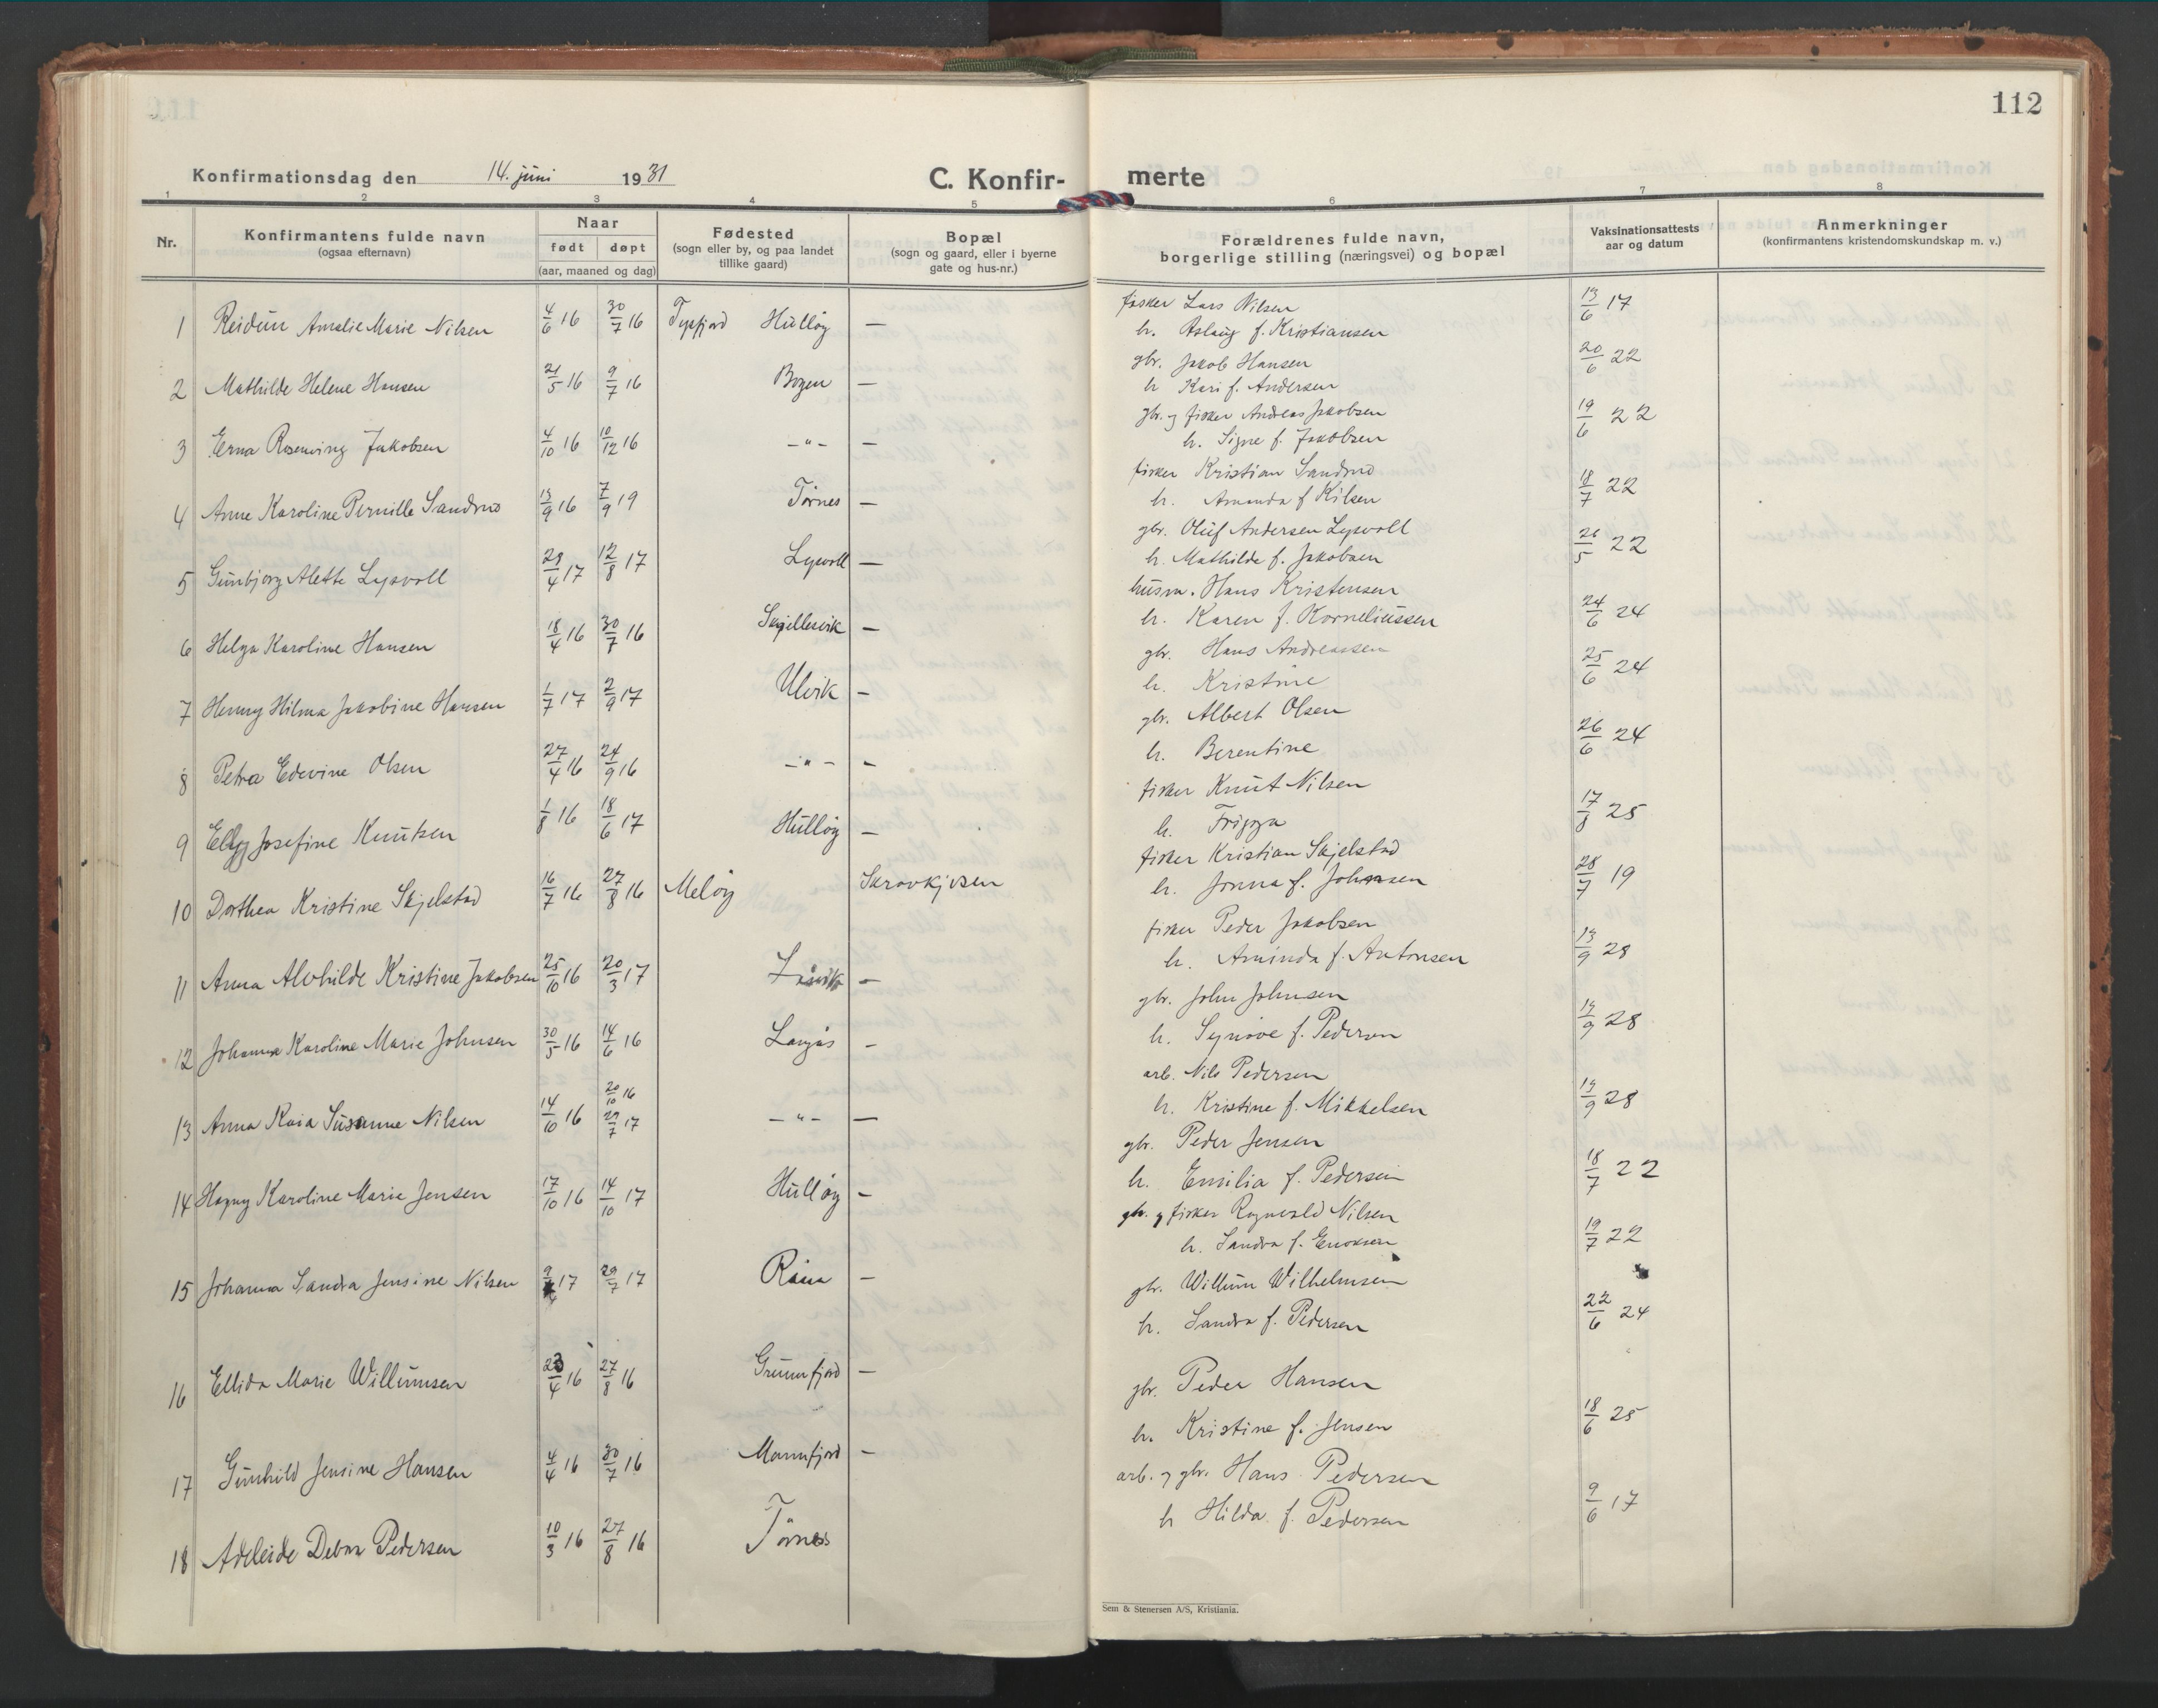 112
Konfirmationsdag den 14. juni 1931
C. Konfirmerte
1 2 3 4 5 6 7 8
Nr.
Konfirmantens fulde navn
(ogsaa efternavn)
Naar
født døpt
(aar, maaned og dag)
Fødested
(sogn eller by, og paa landet
tillike gaard)
Bopæl
(sogn og gaard, eller i byerne
gate og hus-nr.)
Forældrenes fulde navn,
borgerlige stilling (næringsvei) og bopæl
Vaksinationsattests
aar og datum
Anmerkninger
(konfirmantens kristendomskundskap m. v.)
1 Reidun Amalie Marie Nilsen 4/6 16 30/7 16 Tysfjord Hulløy — fisker Lars Nilsen 13/6 17
h. Aslaug f. Kristiansen
2 Mathilde Helene Hansen 21/5 16 9/7 16 Bogen — gbr. Jakob Hansen 20/6 22
h. Kari f. Andersen
3 Erna Rosenving Jakobsen 4/10 16 10/12 16 -"- — gbr. og fisker Andreas Jakobsen 19/6 22
h. Signe f. Jakobsen
4 Anne Karoline Pernille Sandnes 13/9 16 7/9 19 Tørnes — fisker Kristian Sandnes 18/7 22
h. Amanda f. Nilsen
5 Gunbjorg Alette Lysvoll 28/4 17 12/8 17 Lysvoll — gbr. Oluf Andersen Lysvoll 26/5 22
h. Mathilde f. Jakobsen
6 Helga Karoline Hansen 18/4 16 30/7 16 Skjellesvik — husm. Hans Kristensen 24/6 24
h. Karen f. Korneliussen
7 Henny Hilma Jakobine Hansen 1/7 17 2/9 17 Ulvik — gbr. Hans Andreassen 25/6 24
h. Kristine
8 Petra Edevine Olsen 27/4 16 24/9 16 -"- — gbr. Albert Olsen 26/6 24
h. Berentine
9 Elly Josefine Knutsen 1/8 16 18/6 17 Hulløy — fisker Knut Nilsen 17/8 25
h. Frigga
10 Dorthea Kristine Skjelstad 16/7 16 27/8 16 Meløy Skrovkjosen fisker Kristian Skjelstad 28/7 19
h. Jonna f. Johansen
11 Anna Alvhilde Kristine Jakobsen 25/10 16 20/3 17 — fisker Peder Jakobsen 13/9 28
h. Aminda f. Antonsen
12 Johanna Karoline Marie Johnsen 30/5 16 14/6 16 Langås — gbr. John Johnsen 14/9 28
h. Synøve f. Pedersen
13 Anna Kaia Susanne Nilsen 14/10 16 20/10 16 29/7 17 -"- — arb. Nils Pedersen 14/9 28
h. Kristine f. Mikkelsen
14 Hagny Karoline Marie Jensen 17/10 16 14/10 17 Hulløy — gbr. Peder Jensen 18/7 22
h. Emilia f. Pedersen
15 Johanna Sandra Jensine Nilsen 9/4 17 29/7 17 — gbr. og fisker Ragnvald Nilsen 19/7 22
h. Sandra f. Enoksen
16 Ellida Marie Willumsen 23/4 16 27/8 16 Grunnfjord — gbr. Willum Wilhelmsen 22/6 24
h. Sandra f. Pedersen
17 Gunhild Jensine Hansen 4/4 16 30/7 16 Mannfjord — gbr. Peder Hansen 18/6 25
h. Kristine f. Jensen
18 Adeleide Debora Pedersen 10/3 16 27/8 16 Tørnes arb. og gbr. Hans Pedersen 9/6 17
h. Hilda f. Pedersen
Sem & Stenersen A/S, Kristiania.